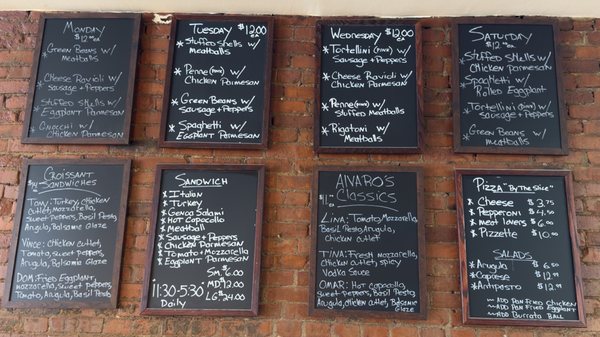 Monday
$12.00 ea
* Green Beans w/
Meatballs
* Cheese Ravioli w/
Sausage + Peppers
* Stuffed Shells w/
Eggplant Parmesan
* Gnocchi w/
Chicken Parmesan
Tuesday $12.00 ea
* Stuffed Shells w/
Meatballs
* Penne w/
Chicken Parmesan
* Green Beans w/
Sausage + Peppers
* Spaghetti w/
Eggplant Parmesan
Wednesday $12.00 ea
* Tortellini w/
Sausage + Peppers
* Cheese Ravioli w/
Chicken Parmesan
* Penne w/
Stuffed Meatballs
* Rigatoni w/
Meatballs
Saturday
$12.00 ea
* Stuffed Shells w/
Chicken Parmesan
* Spaghetti w/
Rolled Eggplant
* Tortellini w/
Sausage + Peppers
* Green Beans w/
Meatballs
Croissant
Sandwiches
Tony: Chicken
Cutlet, Mozzarella,
Sweet Peppers, Basil Pesto,
Arugula, Balsamic Glaze
Vince: Chicken Cutlet,
Tomato, Sweet Peppers,
Arugula, Balsamic Glaze
Dom: Fried Eggplant,
Mozzarella, Sweet Peppers,
Tomato, Arugula, Basil Pesto
Sandwich
* Italian
* Turkey
* Genoa Salami
* Hot Capocolo
* Meatball
* Sausage + Peppers
* Chicken Parmesan
* Tomato + Mozzarella
* Eggplant Parmesan
Sm $6.00
MD $12.00
LG $24.00
11:30-5:30
Daily
$11 Alvaro's
Classics
Lina: Tomato, Mozzarella,
Basil Pesto, Arugula,
Chicken Cutlet
Tina: Fresh Mozzarella,
Chicken Cutlet, Spicy
Vodka Sauce
Omar: Hot Capocolo, Sweet
Peppers, Basil Pesto,
Arugula, Chicken Cutlet, Balsamic
Glaze
Pizza "By the Slice"
* Cheese $3.75
* Pepperoni $4.50
* Meat Lovers $6.00
* Pizzette $10.00
Salads
* Arugula $6.00
* Caprese $12.99
* Antipasto $12.99
~ Add Pan Fried Chicken
~ Add Pan Fried Eggplant
~ Add Burrata Ball